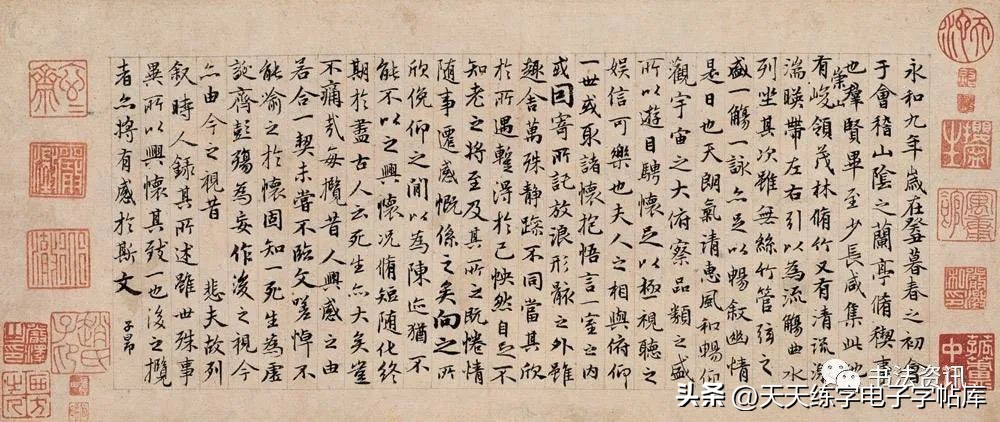 永和九年歲在癸暮春之初會
于會稽山陰之蘭亭脩稧事
也羣賢畢至少長咸集此地
有崇山峻領茂林脩竹又有清流激
湍暎帶左右引以為流觴曲水
列坐其次雖無絲竹管弦之
盛一觴一詠亦足以暢敘幽情
是日也天朗氣清惠風和暢仰
觀宇宙之大俯察品類之盛
所以遊目騁懷足以極視聽之
娛信可樂也夫人之相與俯仰
一世或取諸懷抱悟言一室之內
或因寄所託放浪形骸之外雖
趣舍萬殊静躁不同當其欣
於所遇蹔得於己怏然自足不
知老之將至及其所之既惓情
随事遷感慨係之矣向之所
欣俛仰之閒以為陳迹猶不
能不以之興懷况脩短随化終
期於盡古人云死生亦大矣豈
不痛哉每攬昔人興感之由
若合一契未甞不臨文嗟悼不
能喻之於懷固知一死生為虛
誕齊彭殤為妄作後之視今
亦由今之視昔 悲夫故列
敘時人錄其所述雖世殊事
異所以興懷其致一也後之攬
者亦將有感於斯文
子昂
书法资讯
头条 @天天练字电子字帖库